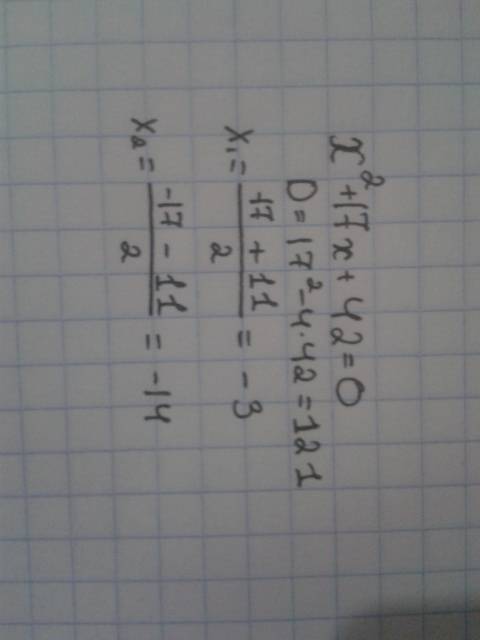 x² + 17x + 42 = 0
D = 17² - 4·42 = 121
x₁ = -17 + 11 / 2 = -3
x₂ = -17 - 11 / 2 = -14